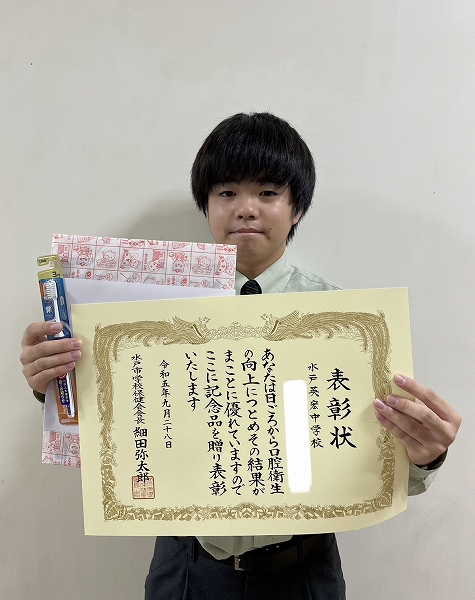 表彰状
水戸英宏中学校
あなたは日ごろから口腔衛生
の向上につとめその結果が
まことに優れていますので
ここに記念品を贈り表彰
いたします
令和五年九月二十八日
水戸市学校保健会会長 細田弥太郎